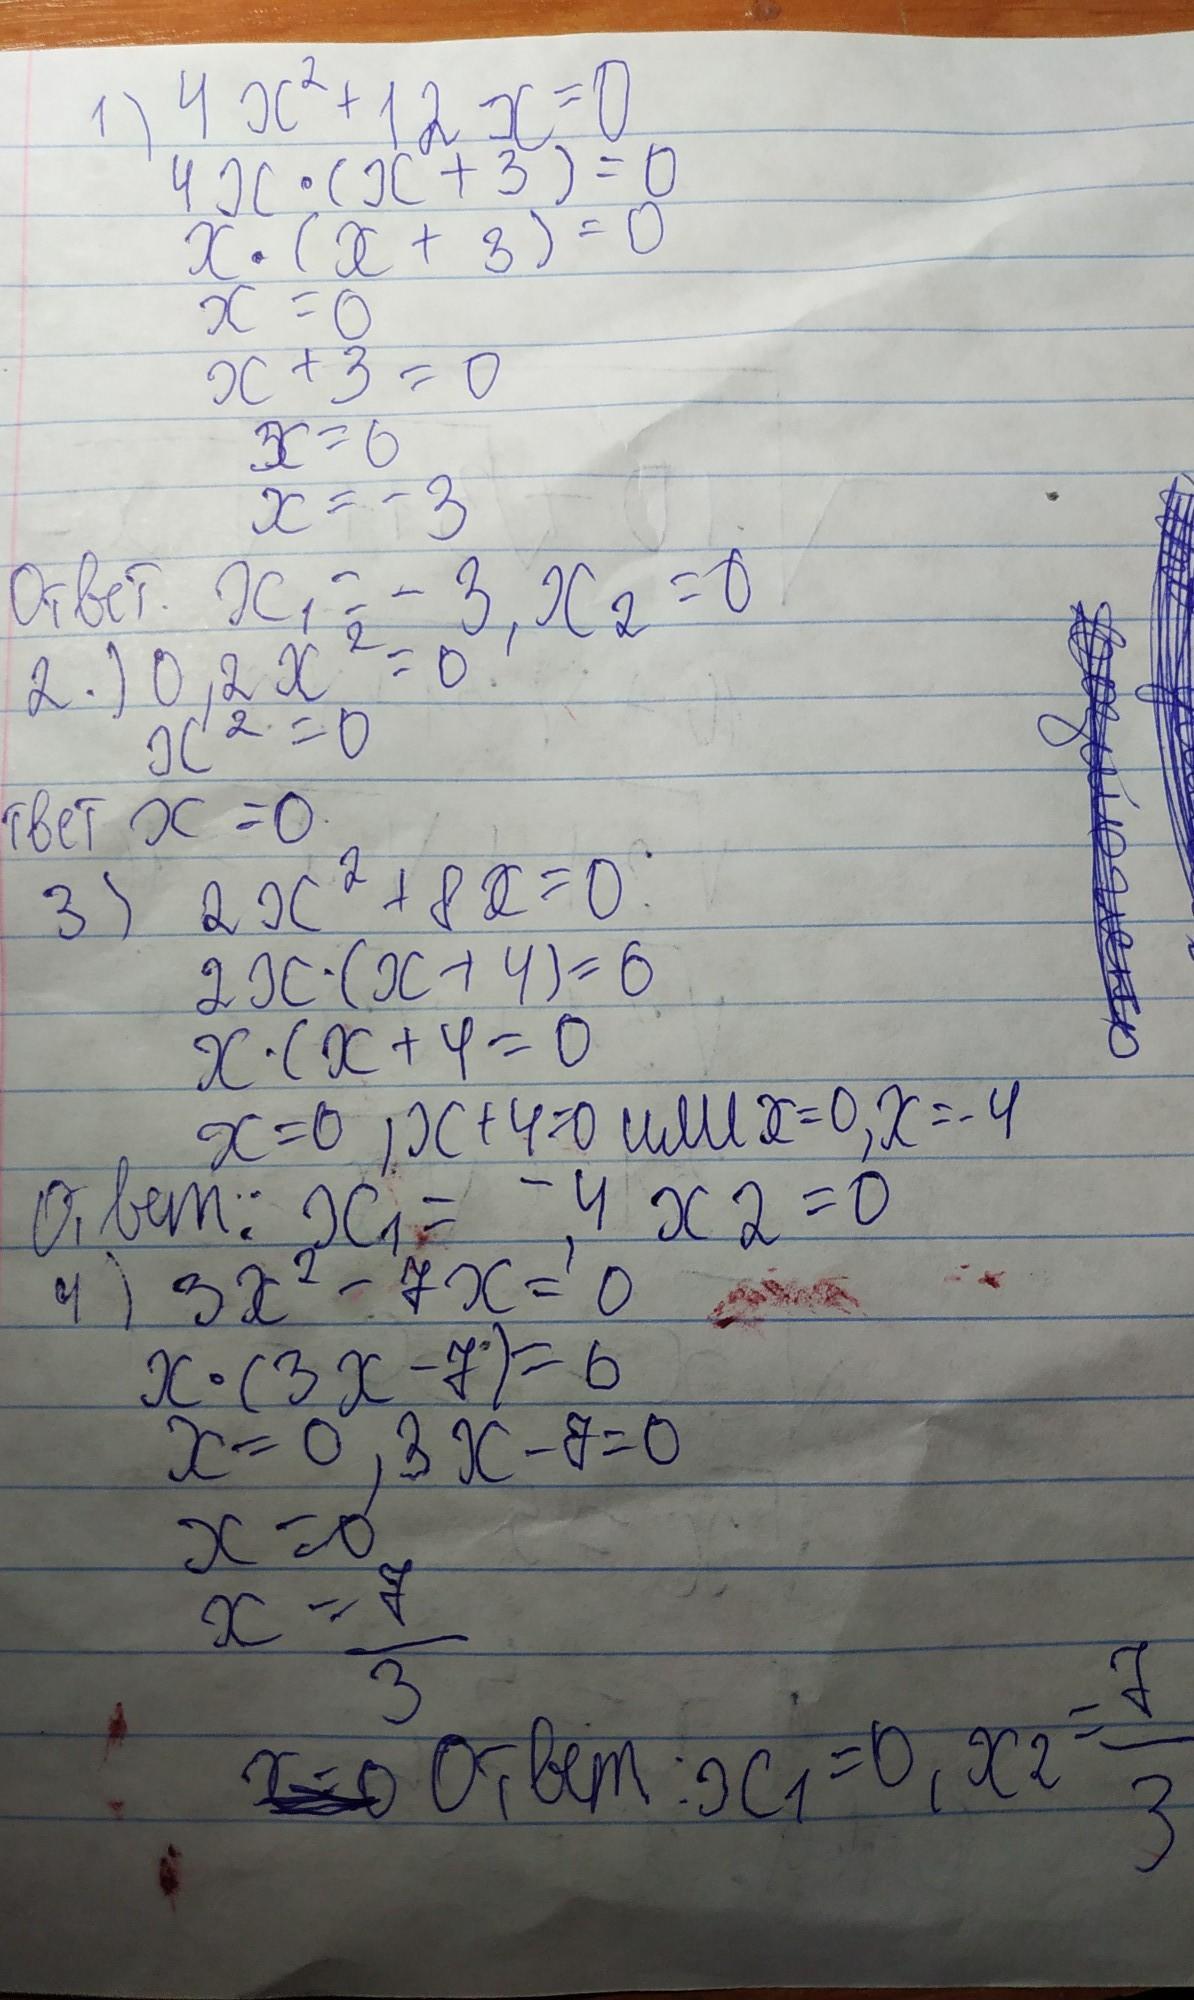 1) 4x²+12x=0
4x·(x+3)=0
x·(x+3)=0
x=0
x+3=0
x=0
x=-3
Ответ. x₁=-3, x₂=0
2.) 0,2x²=0
x²=0
твет x=0.
3) 2x²+8x=0
2x·(x+4)=0
x·(x+4=0
x=0, x+4=0 или x=0, x=-4
Ответ: x₁= -4, x2=0
4) 3x²-7x=0
x·(3x-7)=0
x=0, 3x-7=0
x=0
x=7/3
Ответ: x₁=0, x2=7/3